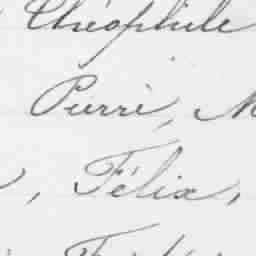 Théophile
Pierre, M
, Félix,